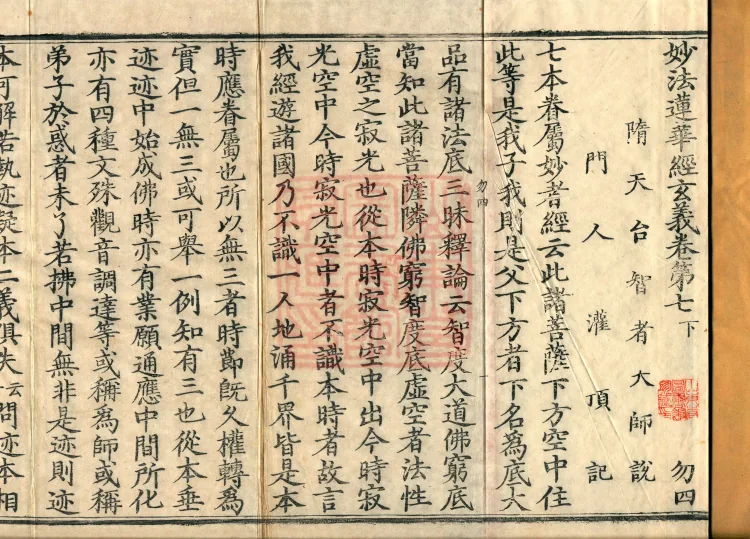 妙法蓮華經玄義卷第七下 勿四
隋天台智者大師說
門人灌頂記
七本眷屬妙者經云此諸菩薩下方空中住
此等是我子我則是父下方者下名為底大
勿四
品有諸法底三昧釋論云智度大道佛窮底
當知此諸菩薩隣佛窮智度底虛空者法性
虛空之寂光也從本時寂光空中出今時寂
光空中今時寂光空中者不識本時者故言
我經遊諸國乃不識一人地涌千界皆是本
時應眷屬也所以無三者時節既久權轉為
實但一無三或可舉一例知有三也從本垂
迹迹中始成佛時亦有業願通應中間所化
亦有四種文殊觀音調達等或稱為師或稱
弟子於惑者未了若拂中間無非是迹則迹
本可解若執迹疑本二義俱失云云問迹本相